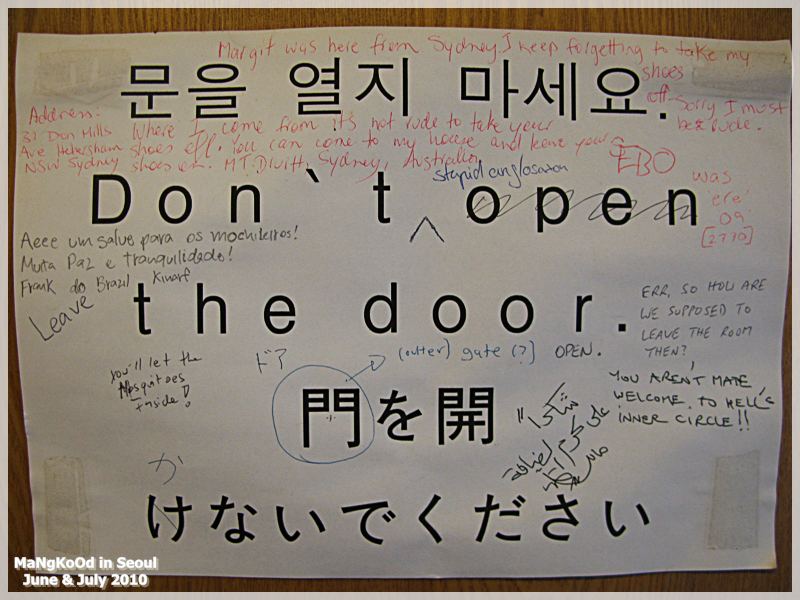 Margit was here from Sydney. I keep forgetting to take my
shoes
off. Sorry I must
be rude.
문을 열지 마세요.
Address:
Where I come from it's not rude to take your
Ave Hebersham shoes off. You can come to my house and leave your
NSW Sydney shoes on. MT. Druitt, Sydney, Australia
stupid anglosaxon
EBO
was
'ere'
09
[2770]
Don`t open
Aeee um salve para os mochileiros!
Muita Paz e tranquilidade!
Frank do Brazil
Leave
the door.
ERR, SO HOW ARE
WE SUPPOSED TO
LEAVE THE ROOM
THEN?
YOU AREN'T MATE
WELCOME TO HELL'S
INNER CIRCLE!!
you'll let the
Mosquitoes
Inside!
ドア
(outter) gate (?) OPEN.
門を開
か
けないでください
شكرا
على كرم الضيافة
MaNgKoOd in Seoul
June & July 2010